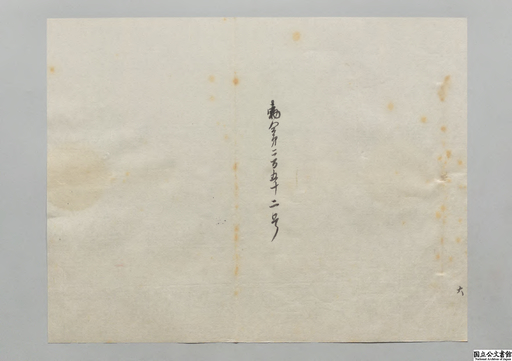 勅令第二百五十二号
大
国立公文書館
National Archives of Japan